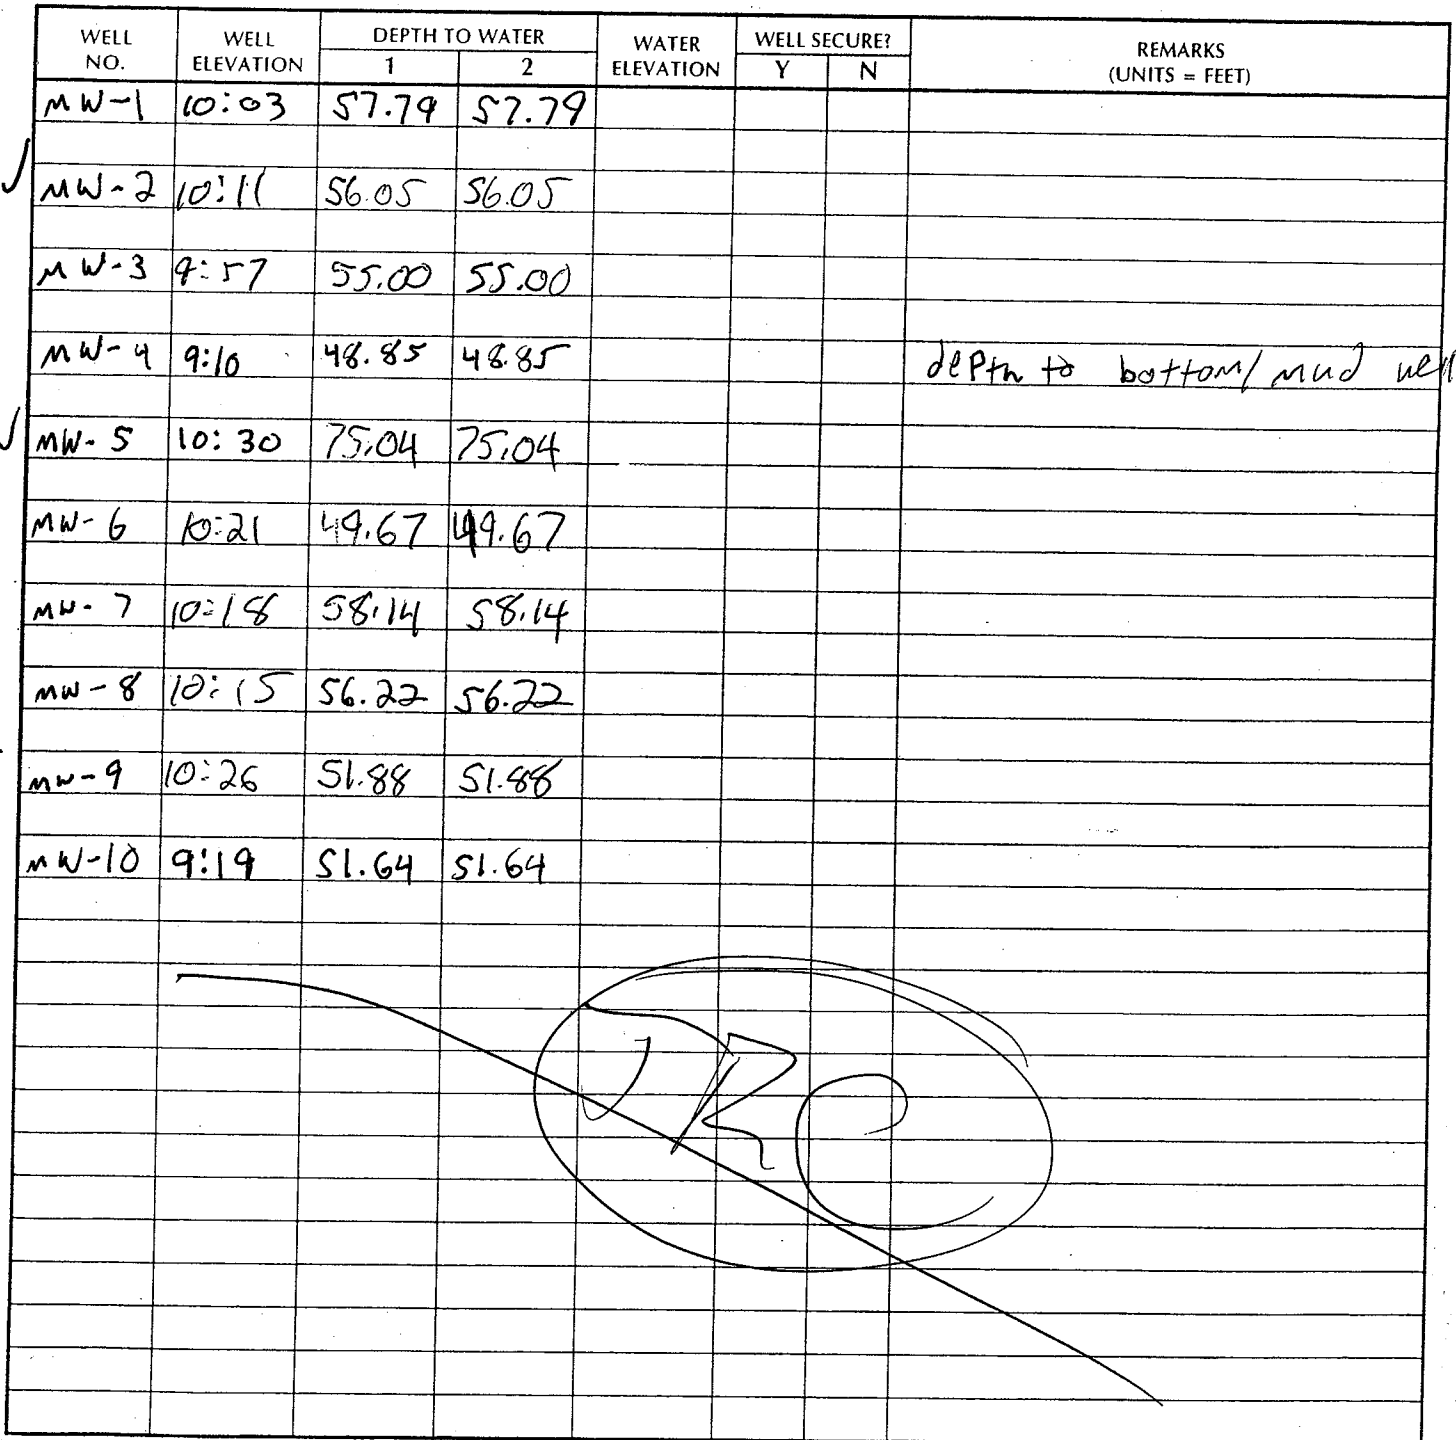 WELL NO. WELL ELEVATION DEPTH TO WATER 1 2 WATER ELEVATION WELL SECURE? Y N REMARKS (UNITS = FEET)
MW-1 10:03 57.79 57.79
✓ MW-2 10:11 56.05 56.05
MW-3 9:57 55.00 55.00
MW-4 9:10 48.85 48.85 depth to bottom/mud well
✓ MW-5 10:30 75.04 75.04
MW-6 10:21 49.67 49.67
MW-7 10:18 58.14 58.14
MW-8 10:15 56.22 56.22
MW-9 10:26 51.88 51.88
MW-10 9:19 51.64 51.64